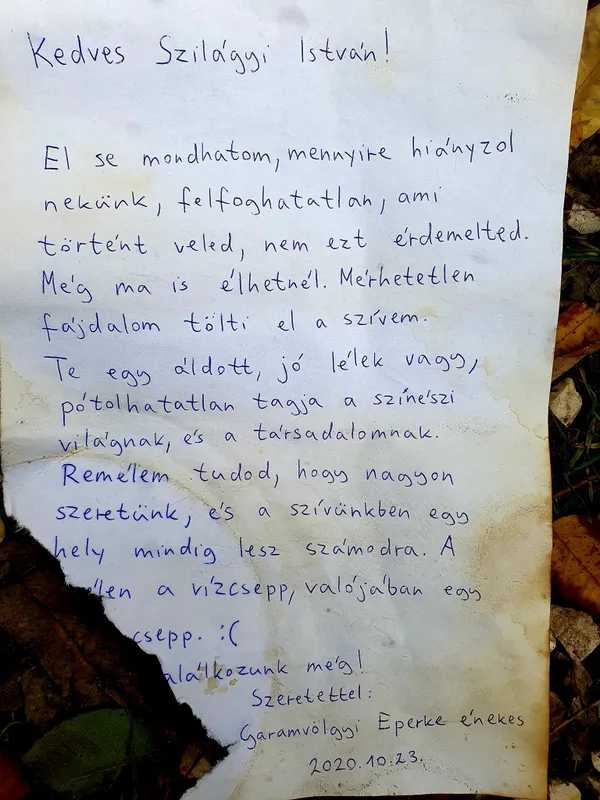 Kedves Szilágyi István!
El se mondhatom, mennyire hiányzol
nekünk, felfoghatatlan, ami
történt veled, nem ezt érdemelted.
Még ma is élhetnél. Mérhetetlen
fájdalom tölti el a szívem.
Te egy áldott, jó lélek vagy,
pótolhatatlan tagja a színészi
világnak, és a társadalomnak.
Remélem tudod, hogy nagyon
szeretünk, és a szívünkben egy
hely mindig lesz számodra. A
len a vízcsepp, valójában egy
csepp. :(
alálkozunk még!
Szeretettel:
Garamvölgyi Eperke énekes
2020.10.23.